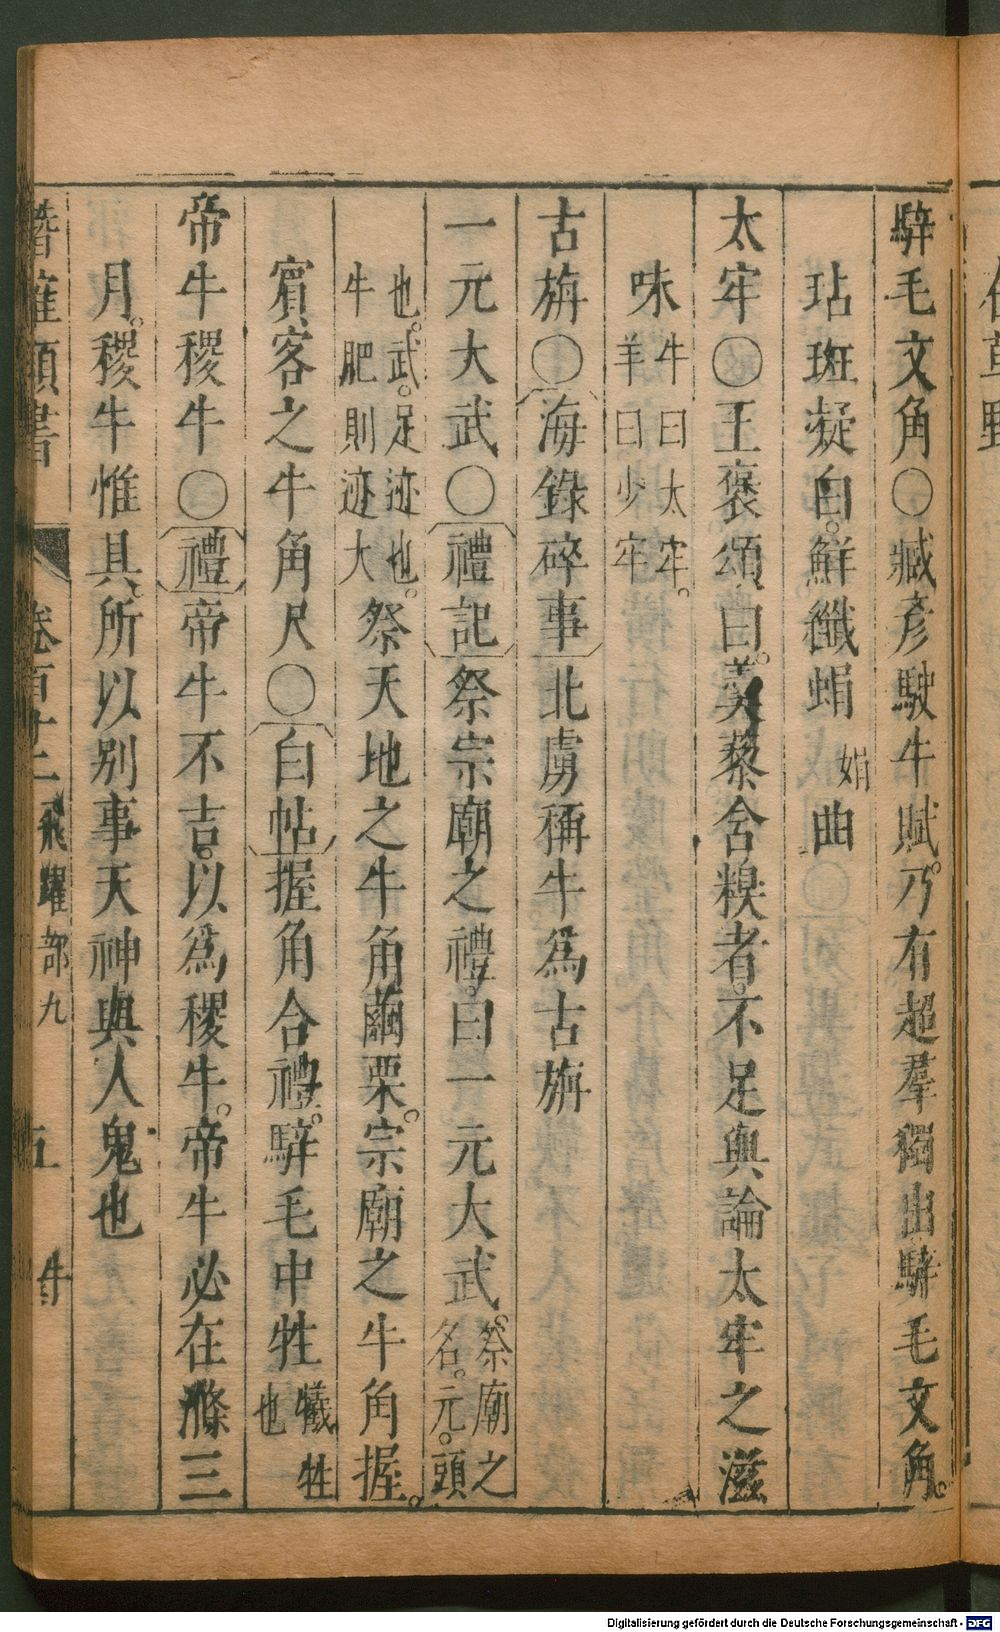 騂毛文角〇臧彥駛牛賦。乃有超羣獨出騂毛文角。
玷斑凝白。鮮纖蜎娟曲
太牢〇王褒頌曰。羹藜含糗者。不足與論太牢之滋
味牛曰太牢。羊曰少牢
古旃〇海錄碎事北虜稱牛為古旃
一元大武〇禮記祭宗廟之禮。曰一元大武。祭廟之名。元。頭
也。武。足迹也。牛肥則迹大祭天地之牛角繭栗。宗廟之牛角握。
賓客之牛角尺〇白帖握角合禮。騂毛中牲犧牲也
帝牛稷牛〇禮帝牛不吉。以為稷牛。帝牛必在滌三
月。稷牛惟具。所以別事天神與人鬼也
潛確類書 卷百十二 飛躍部九 五 牛
Digitalisierung gefördert durch die Deutsche Forschungsgemeinschaft - DFG